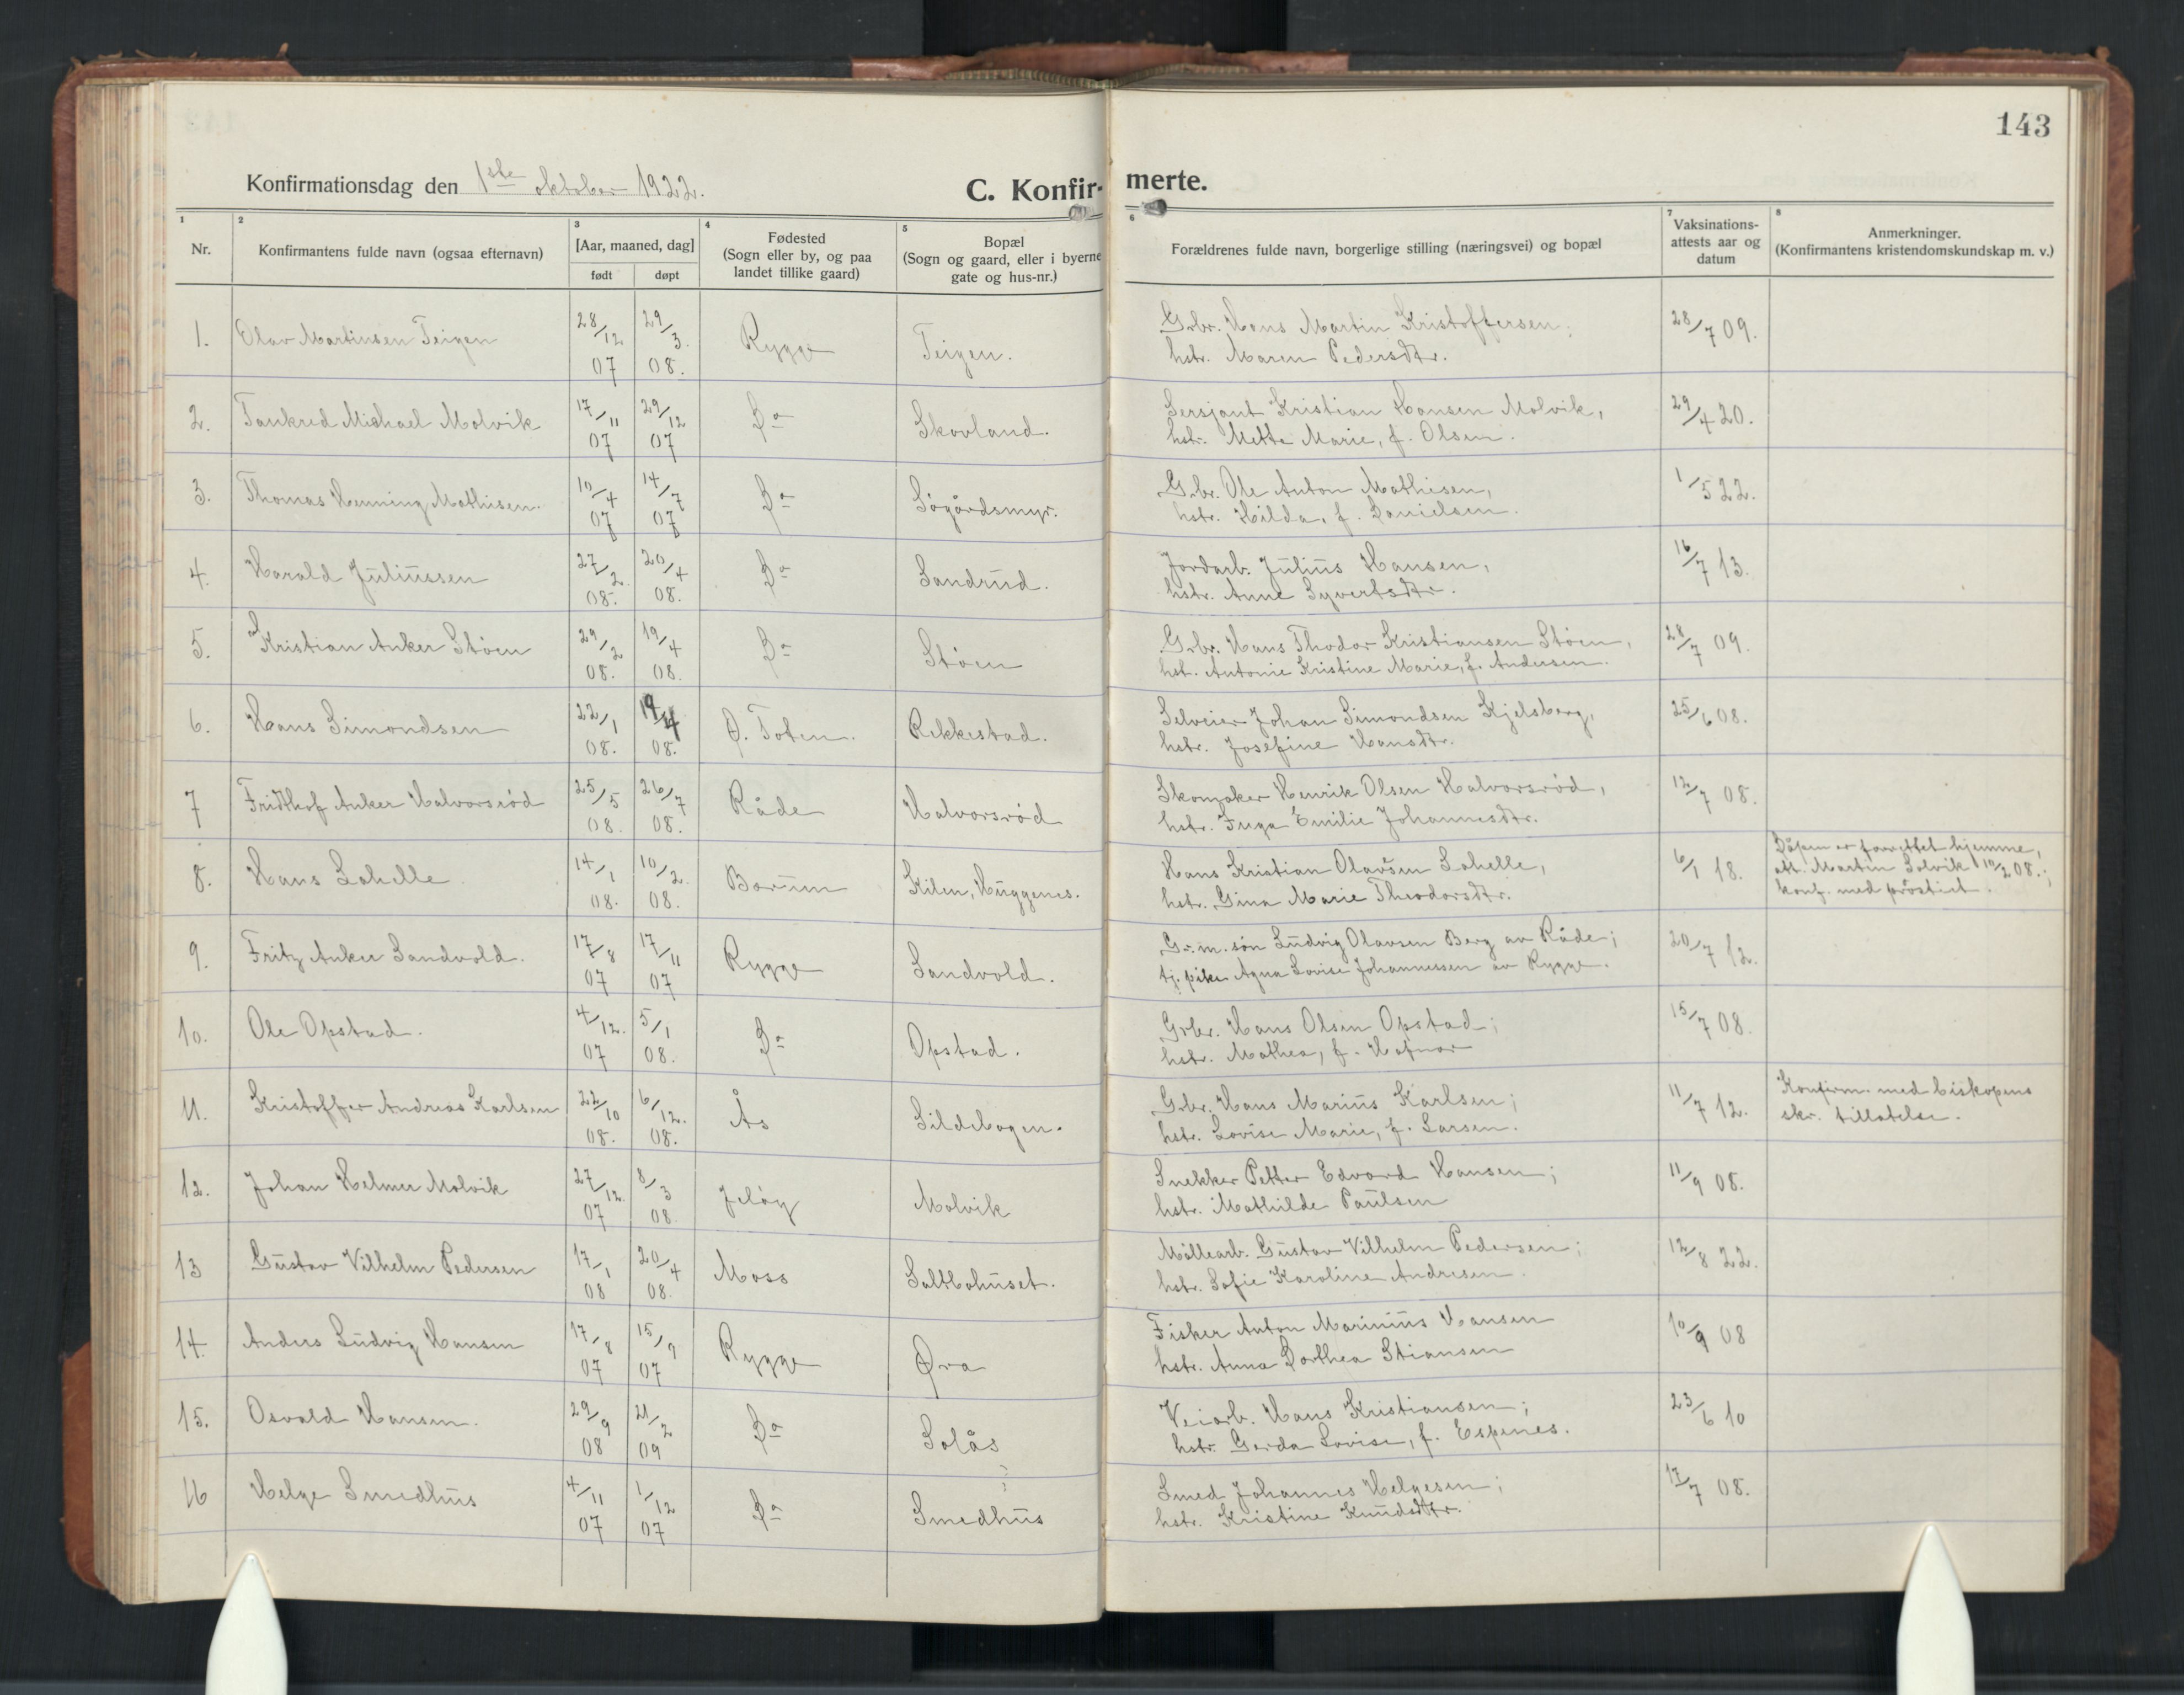 143
Konfirmationsdag den 1ste oktober 1922.
C. Konfirmerte.
1 2 3 4 5 6 7 8
Nr.
Konfirmantens fulde navn (ogsaa efternavn)
[Aar, maaned, dag]
født døpt
Fødested
(Sogn eller by, og paa
landet tillike gaard)
Bopæl
(Sogn og gaard, eller i byerne
gate og hus-nr.)
Forældrenes fulde navn, borgerlige stilling (næringsvei) og bopæl
Vaksinations-
attests aar og
datum
Anmerkninger.
(Konfirmantens kristendomskundskap m. v.)
1. Olav Martinsen Teigen 28/12 07 29/3. 08. Rygge Teigen. Grbr. Hans Martin Kristoffersen; 28/7 09.
hstr. Maren Pedersdtr.
2. Tankred Michael Molvik 17/11 07 29/12 07 Do Skovland. Sersjant Kristian Hansen Molvik, 29/4 20.
hstr. Mette Marie, f. Olsen.
3. Thomas Henning Mathisen. 10/4 07 14/7 07 Do Søgårdsmyr. Grbr. Ole Anton Mathisen, 1/5 22.
hstr. Hilda, f. Danielsen.
4. Harald Juliussen 27/2. 08. 20/4 08. Do Sandrud. Jordarb. Julius Hansen, 16/7 13.
hstr. Anne Syvertsdtr.
5. Kristian Anker Støen 29/2 08. 19/4 08. Do Støen Grbr. Hans Thodor Kristiansen Støen, 28/7 09.
hst. Antonie Kristine Marie, f. Andersen.
6. Hans Simondsen 22/1 08. 19/4 08. Ø. Toten. Rekkestad. Selveier Johan Simondsen Kjelsberg, 25/6 08.
hstr. Josefine Hansdtr.
7 Fridthof Anker Halvorsrød 25/5 08. 26/7 08. Råde Halvorsrød Skomaker Henrik Olsen Halvorsrød, 12/7 08.
hstr. Inga Emilie Johannesdtr.
8. Hans Lahelle. 14/1 08. 10/2. 08. Bærum Kilen, Huggenes. Hans Kristian Olavsen Lahelle, 6/1 18. Dåpen er forrettet hjemme,
hstr. Gina Marie Theodorsdtr. att. Martin Solvik 10/2 08.;
konf. med prøstiet.
9. Fritz Anker Sandvold. 17/8 07 17/11 07 Rygge Sandvold. G.m. søn Ludvig Olavsen Berg av Råde; 20/7 12.
tj. pike Agna Lovise Johannessen av Rygge.
10. Ole Opstad. 4/12. 07 5/1 08. Do Opstad. Grbr. Hans Olsen Opstad; 15/7 08.
hstr. Mathea, f. Hafnor
11. Kristoffer Andreas Karlsen 22/10 08. 6/12. 08. Ås Sildebogen. Grbr. Hans Marius Karlsen; 11/7 12. Konfirm. med biskopens
hstr. Lovise Marie, f. Larsen. skr. tillatelse.
12. Johan Helmer Molvik 27/12. 07 8/3 08. Jeløy Molvik Snekker Petter Edvard Hansen; 11/9 08.
hstr. Mathilde Paulsen
13 Gustav Vilhelm Pedersen 17/1 08 20/4 08. Moss Saltbohuset. Møllearb. Gustav Vilhelm Pedersen; 12/8 22.
hstr. Sofie Karoline Andresen.
14. Anders Ludvig Hansen 17/8 07 15/9 07 Rygge Øra Fisker Anton Marinius Hansen 10/9 08
hstr. Anna Dorthea Stiansen
15. Osvald Hansen. 29/9 08 21/2 09 Do Solås Veiarb. Hans Kristiansen; 23/6 10
hstr. Gerda Lovise, f. Espenes.
16 Helge Smedhus 4/11 07 1/12 07 Do Smedhus Smed Johannes Helgesen; 17/7 08.
hstr. Kristine Knudsdtr.